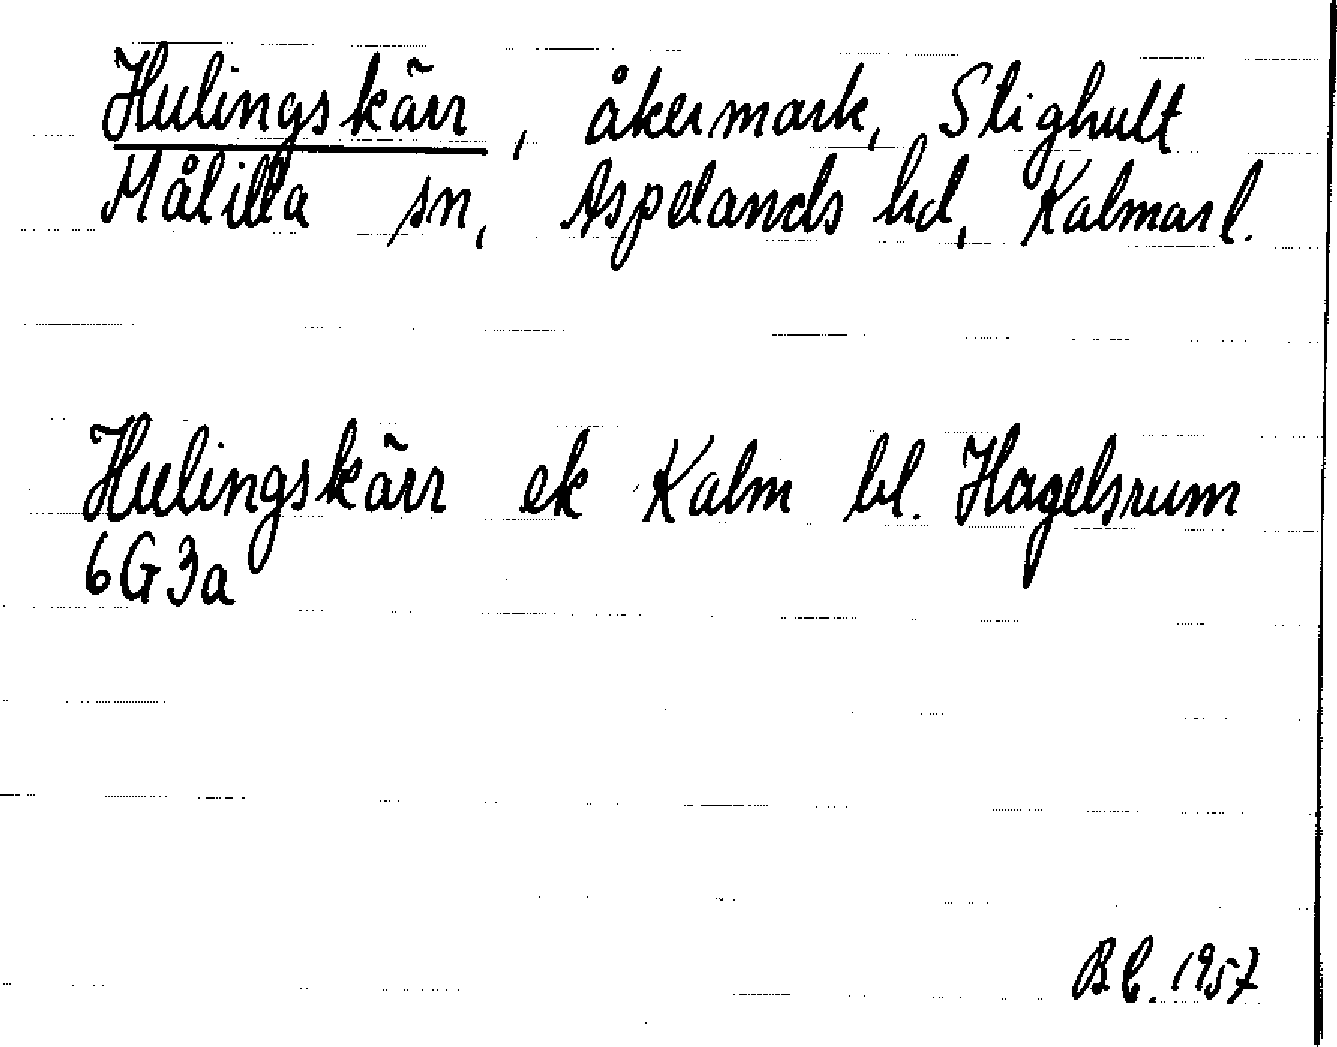 Hulingskärr, åkermark, Stighult
Målilla sn, Aspelands hd, Kalmar l.
Hulingskärr ek Kalm bl. Hagelsrum
6G3a
1957